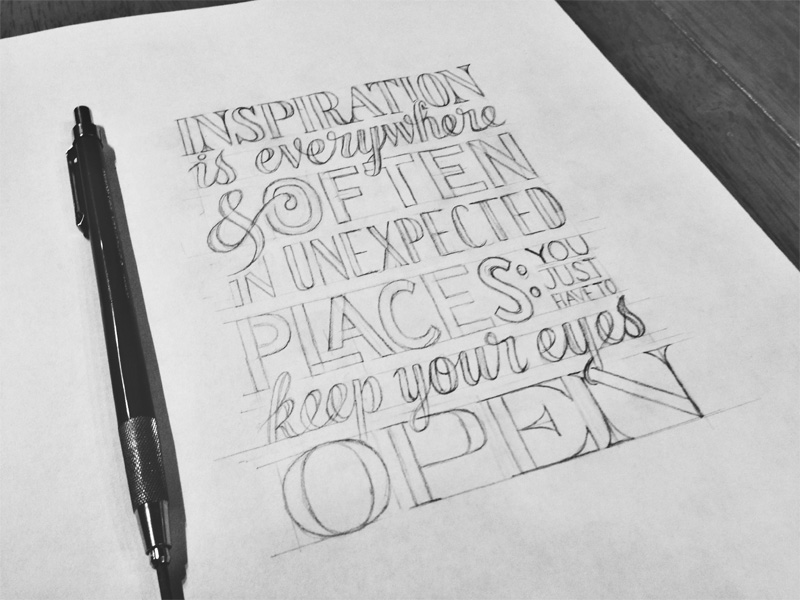 INSPIRATION
is everywhere
& OFTEN
IN UNEXPECTED
PLACES: YOU
JUST
HAVE TO
keep your eyes
OPEN